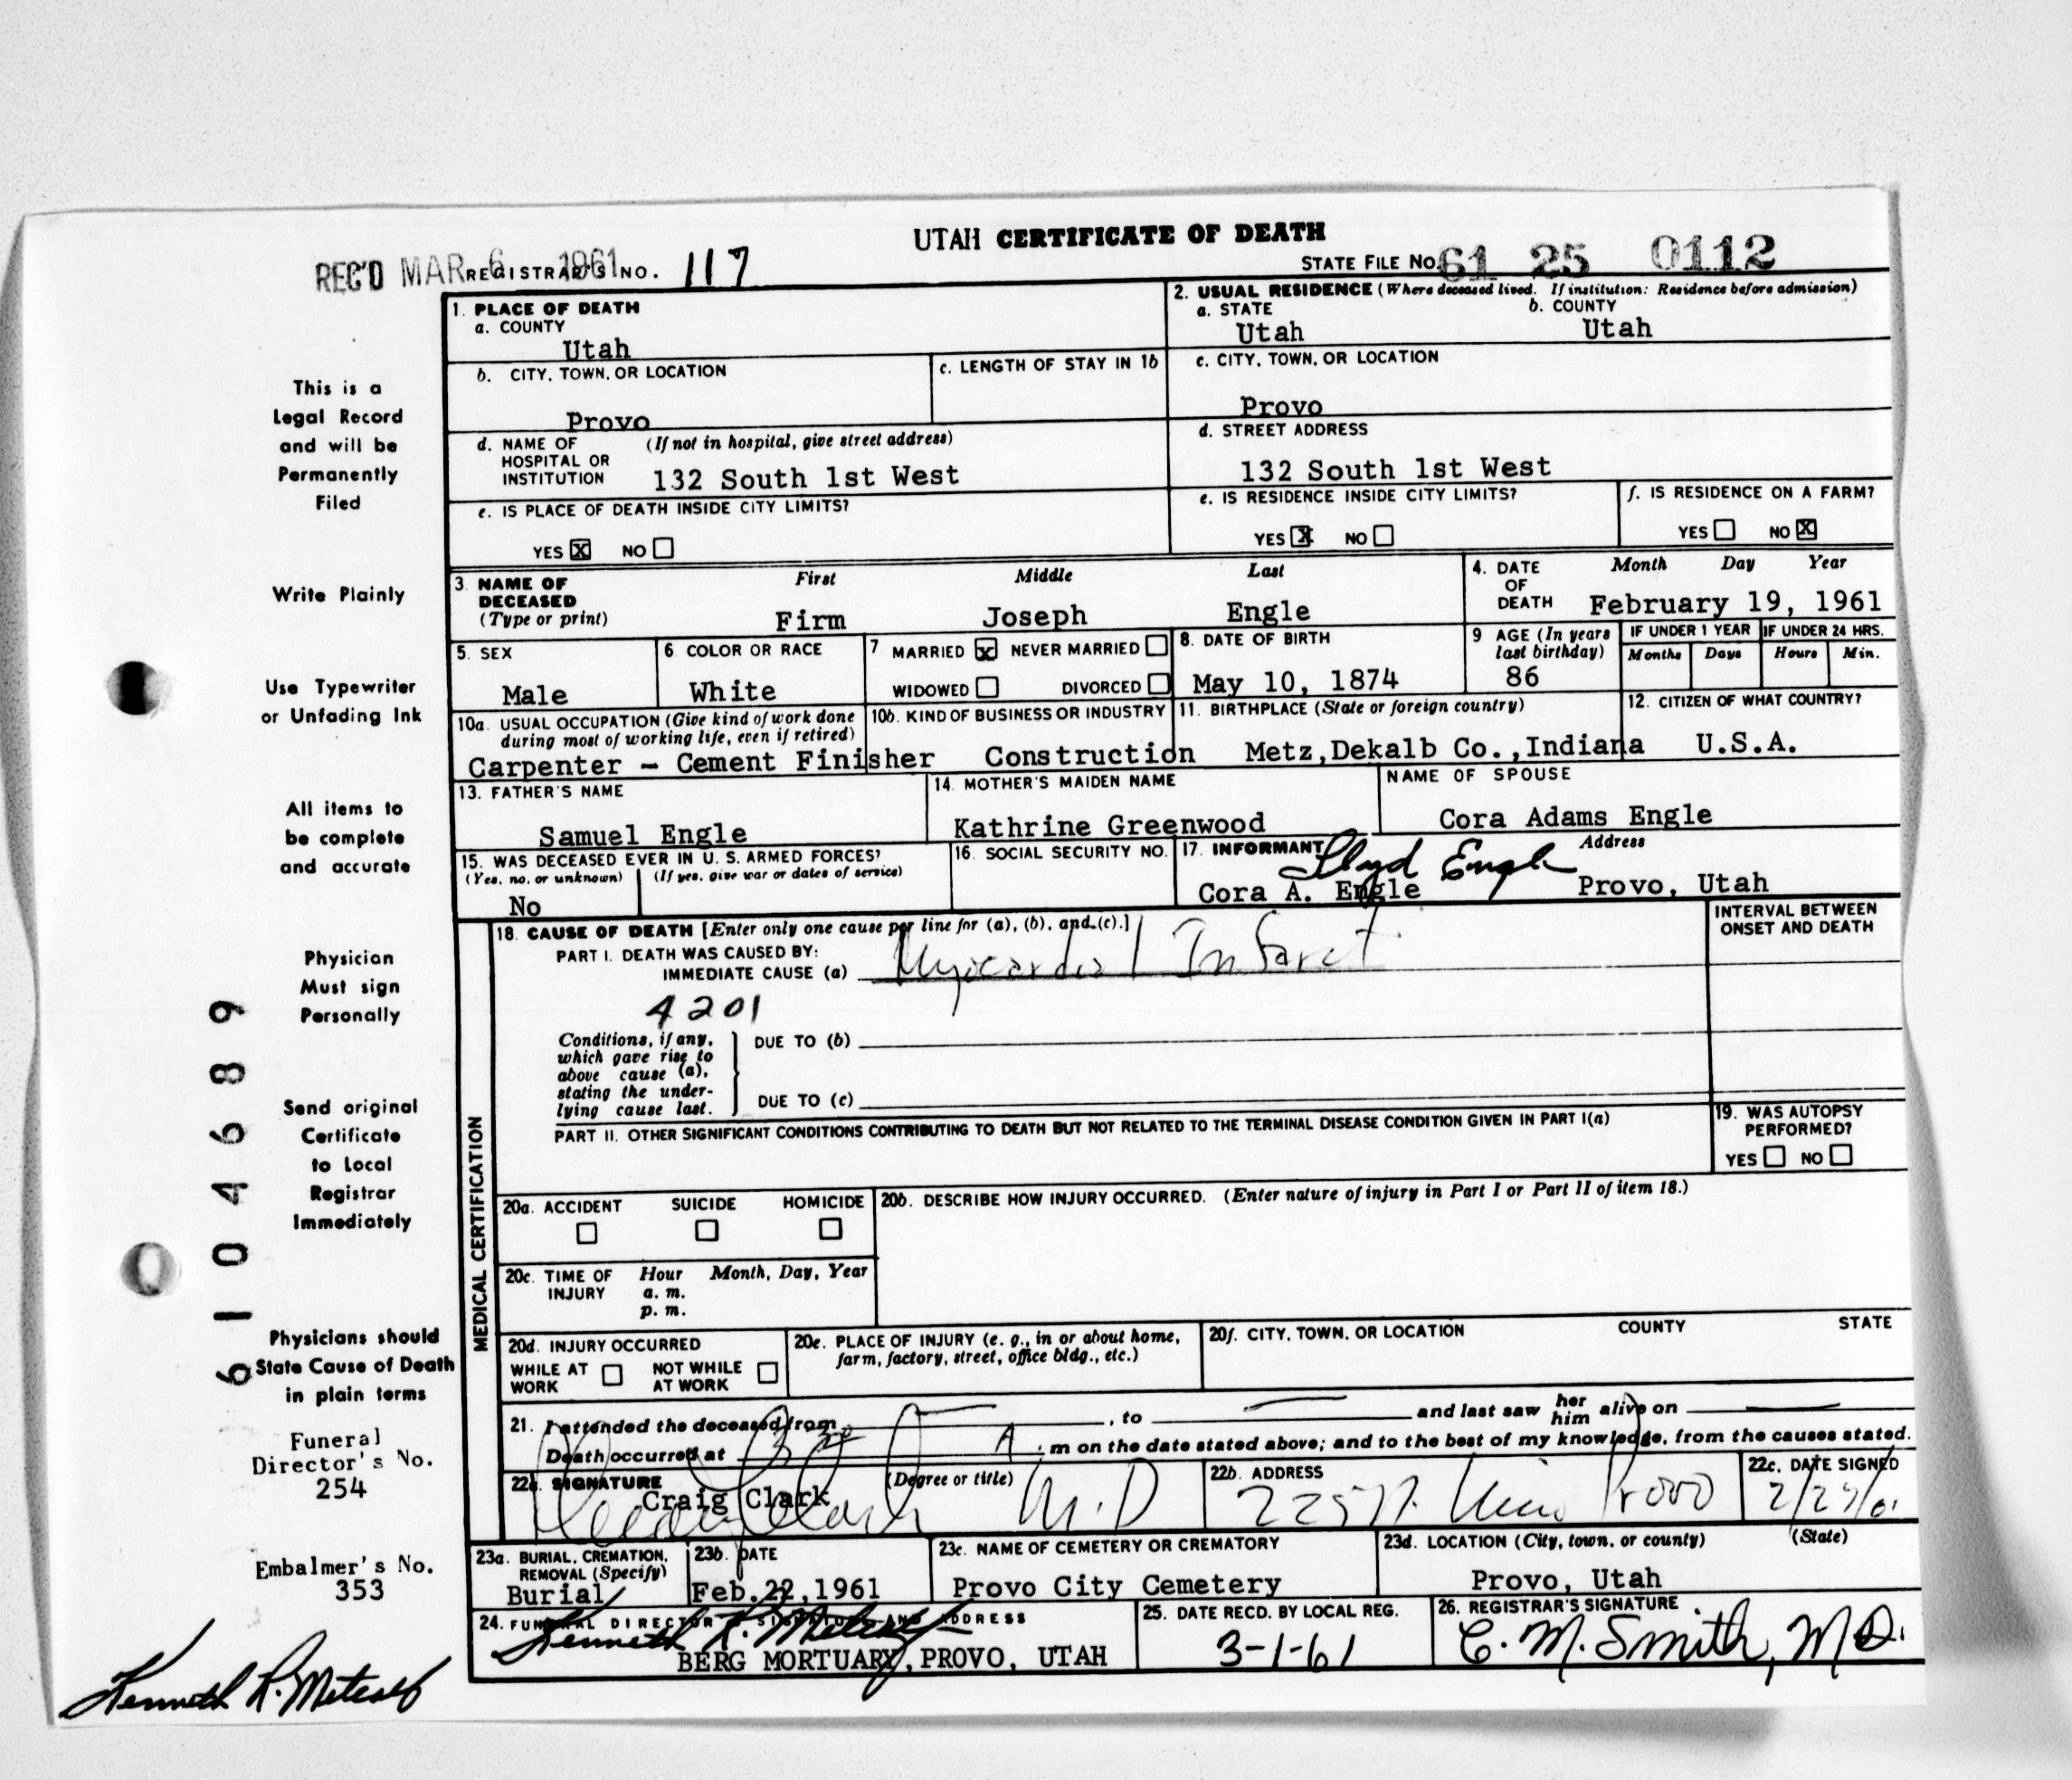 UTAH CERTIFICATE OF DEATH
REC'D MAR 6 1961 REGISTRAR'S NO. 117
STATE FILE NO. 61 25 0112
1. PLACE OF DEATH
a. COUNTY
Utah
2. USUAL RESIDENCE (Where deceased lived. If institution: Residence before admission)
a. STATE b. COUNTY
Utah Utah
b. CITY, TOWN, OR LOCATION
Provo
c. LENGTH OF STAY IN 1b
c. CITY, TOWN, OR LOCATION
Provo
d. NAME OF (If not in hospital, give street address)
HOSPITAL OR
INSTITUTION 132 South 1st West
d. STREET ADDRESS
132 South 1st West
e. IS PLACE OF DEATH INSIDE CITY LIMITS?
YES X NO
e. IS RESIDENCE INSIDE CITY LIMITS?
YES X NO
f. IS RESIDENCE ON A FARM?
YES NO X
3. NAME OF DECEASED
(Type or print)
First Middle Last
Firm Joseph Engle
4. DATE OF DEATH
Month Day Year
February 19, 1961
5. SEX
Male
6 COLOR OR RACE
White
7 MARRIED X NEVER MARRIED
WIDOWED DIVORCED
8. DATE OF BIRTH
May 10, 1874
9 AGE (In years last birthday)
86
IF UNDER 1 YEAR
Months Days
IF UNDER 24 HRS.
Hours Min.
10a. USUAL OCCUPATION (Give kind of work done
during most of working life, even if retired)
Carpenter - Cement Finisher
10b. KIND OF BUSINESS OR INDUSTRY
Construction
11. BIRTHPLACE (State or foreign country)
Metz,Dekalb Co.,Indiana
12. CITIZEN OF WHAT COUNTRY?
U.S.A.
13. FATHER'S NAME
Samuel Engle
14. MOTHER'S MAIDEN NAME
Kathrine Greenwood
NAME OF SPOUSE
Cora Adams Engle
15. WAS DECEASED EVER IN U. S. ARMED FORCES?
(Yes, no, or unknown) (If yes, give war or dates of service)
No
16. SOCIAL SECURITY NO.
17. INFORMANT Lloyd Engle Address
Cora A. Engle Provo, Utah
MEDICAL CERTIFICATION
18. CAUSE OF DEATH [Enter only one cause per line for (a), (b), and (c).]
PART I. DEATH WAS CAUSED BY:
IMMEDIATE CAUSE (a) Myocardial Infarct
INTERVAL BETWEEN
ONSET AND DEATH
4201
Conditions, if any,
which gave rise to
above cause (a),
stating the under-
lying cause last.
DUE TO (b)
DUE TO (c)
PART II. OTHER SIGNIFICANT CONDITIONS CONTRIBUTING TO DEATH BUT NOT RELATED TO THE TERMINAL DISEASE CONDITION GIVEN IN PART I(a)
19. WAS AUTOPSY
PERFORMED?
YES NO
20a. ACCIDENT SUICIDE HOMICIDE
20b. DESCRIBE HOW INJURY OCCURRED. (Enter nature of injury in Part I or Part II of item 18.)
20c. TIME OF INJURY
Hour Month, Day, Year
a. m.
p. m.
20d. INJURY OCCURRED
WHILE AT WORK NOT WHILE AT WORK
20e. PLACE OF INJURY (e. g., in or about home,
farm, factory, street, office bldg., etc.)
20f. CITY, TOWN, OR LOCATION COUNTY STATE
21. I attended the deceased from , to and last saw her him alive on
Death occurred at A m on the date stated above; and to the best of my knowledge, from the causes stated.
22a. SIGNATURE (Degree or title)
Craig Clark M.D
22b. ADDRESS
Provo
22c. DATE SIGNED
23a. BURIAL, CREMATION,
REMOVAL (Specify)
Burial
23b. DATE
Feb.22,1961
23c. NAME OF CEMETERY OR CREMATORY
Provo City Cemetery
23d. LOCATION (City, town, or county) (State)
Provo, Utah
24. FUNERAL DIRECTOR'S SIGNATURE AND ADDRESS
Kenneth R. Metcalf
BERG MORTUARY, PROVO, UTAH
25. DATE RECD. BY LOCAL REG.
3-1-61
26. REGISTRAR'S SIGNATURE
C. M. Smith, MD.
This is a
Legal Record
and will be
Permanently
Filed
Write Plainly
Use Typewriter
or Unfading Ink
All items to
be complete
and accurate
Physician
Must sign
Personally
Send original
Certificate
to Local
Registrar
Immediately
Physicians should
State Cause of Death
in plain terms
Funeral
Director's No.
254
Embalmer's No.
353
Kenneth R. Metcalf
6104689